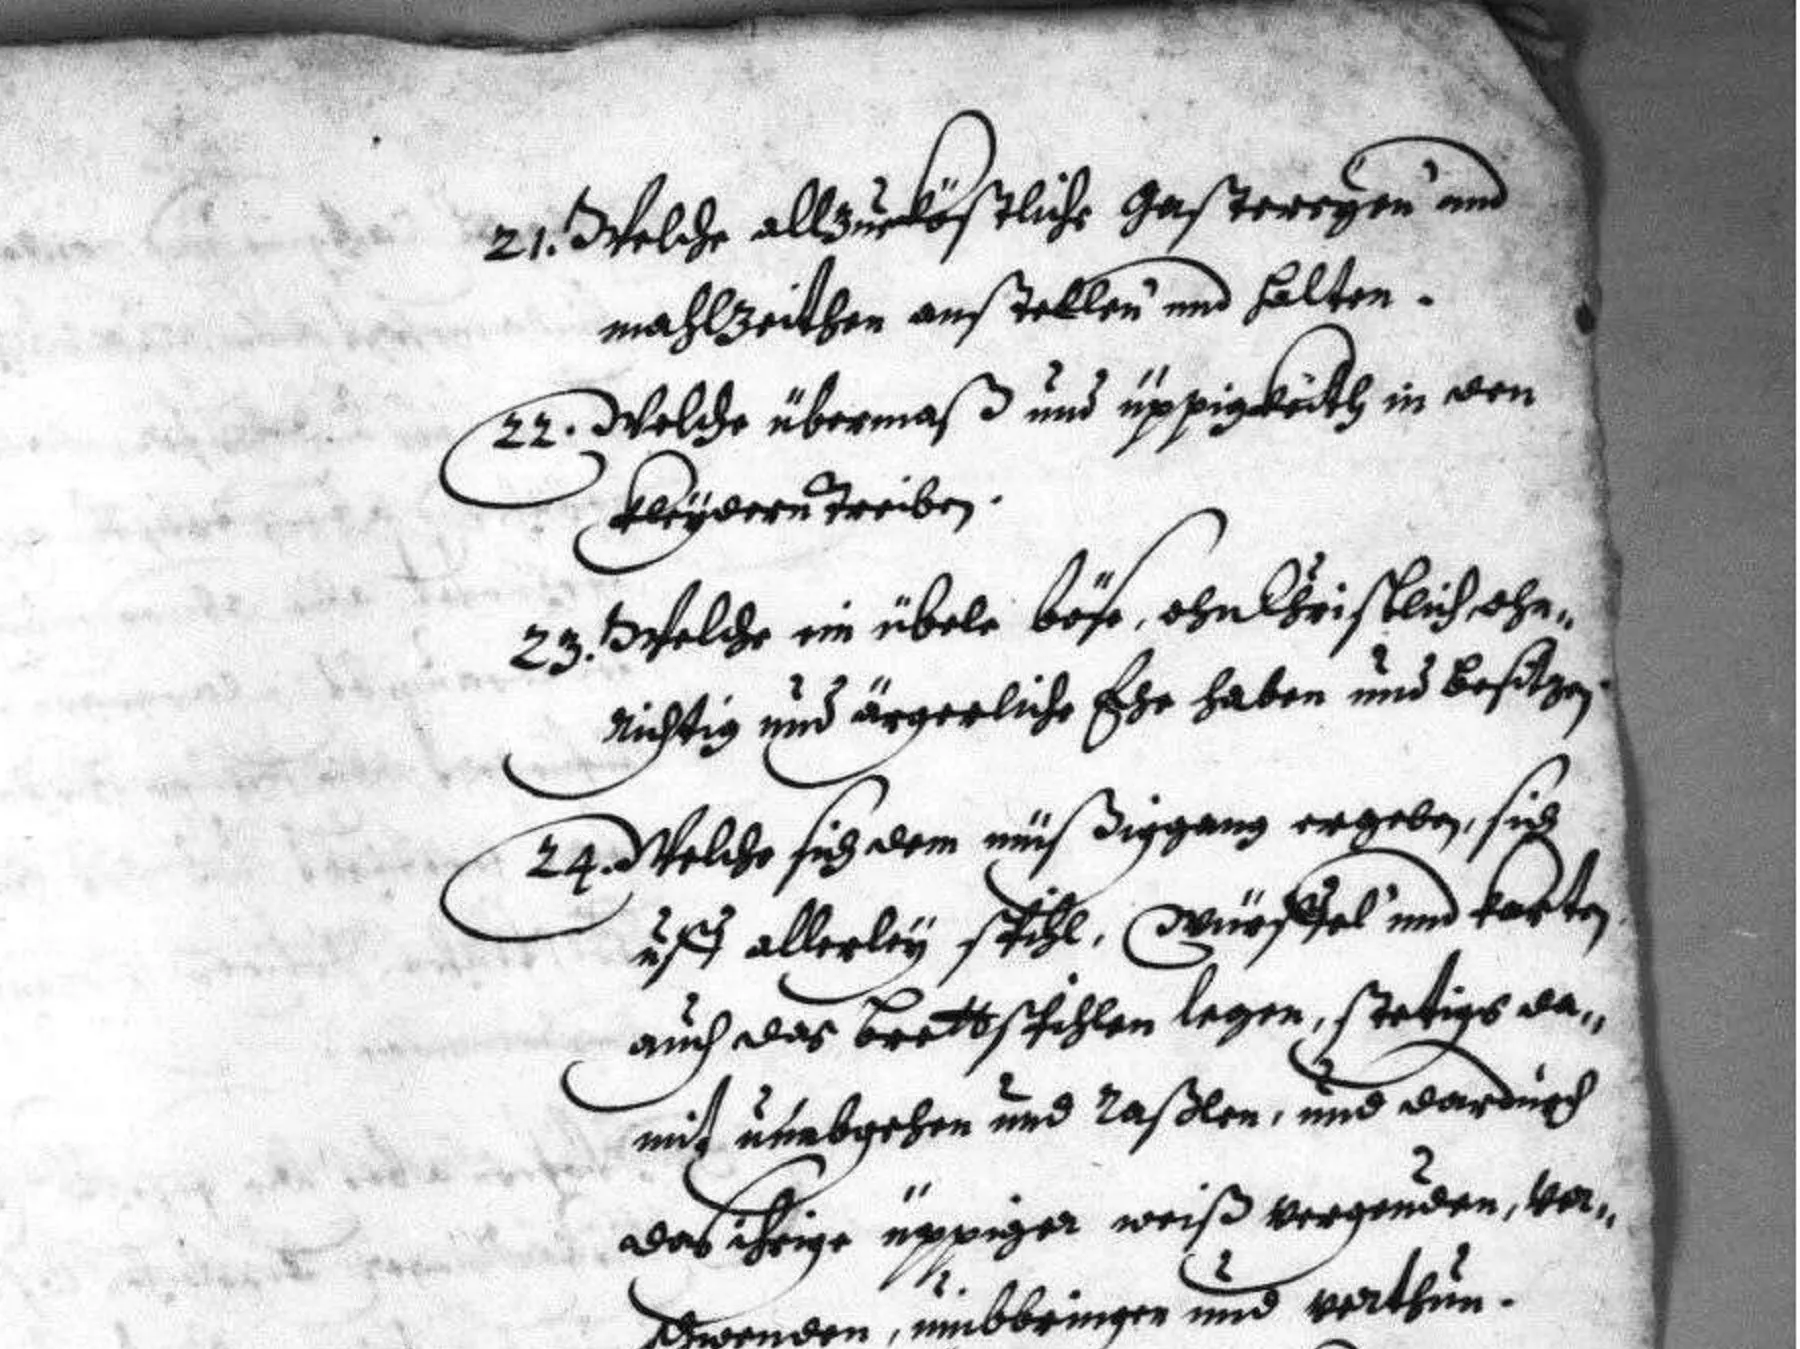 21. Welche allzuköstliche Gastereyen und
mahlzeithen anstellen und halten.
22. Welche übermaß und üppigkeith in den
kleÿdern treiben.
23. Welche ein übele böse, ohnChristlich ohn„
richtig und ärgerliche Ehe haben und besitzen
24. Welche sich dem müßiggang ergeben, sich
uff allerleÿ spihl, Würffel und karten
auch das brettspihlen legen, stetigs da„
mit umbgehen und raßlen, und dardurch
das ihrige üppiger weiß vergeuden, ver„
schwenden, umbbringen und verthun.